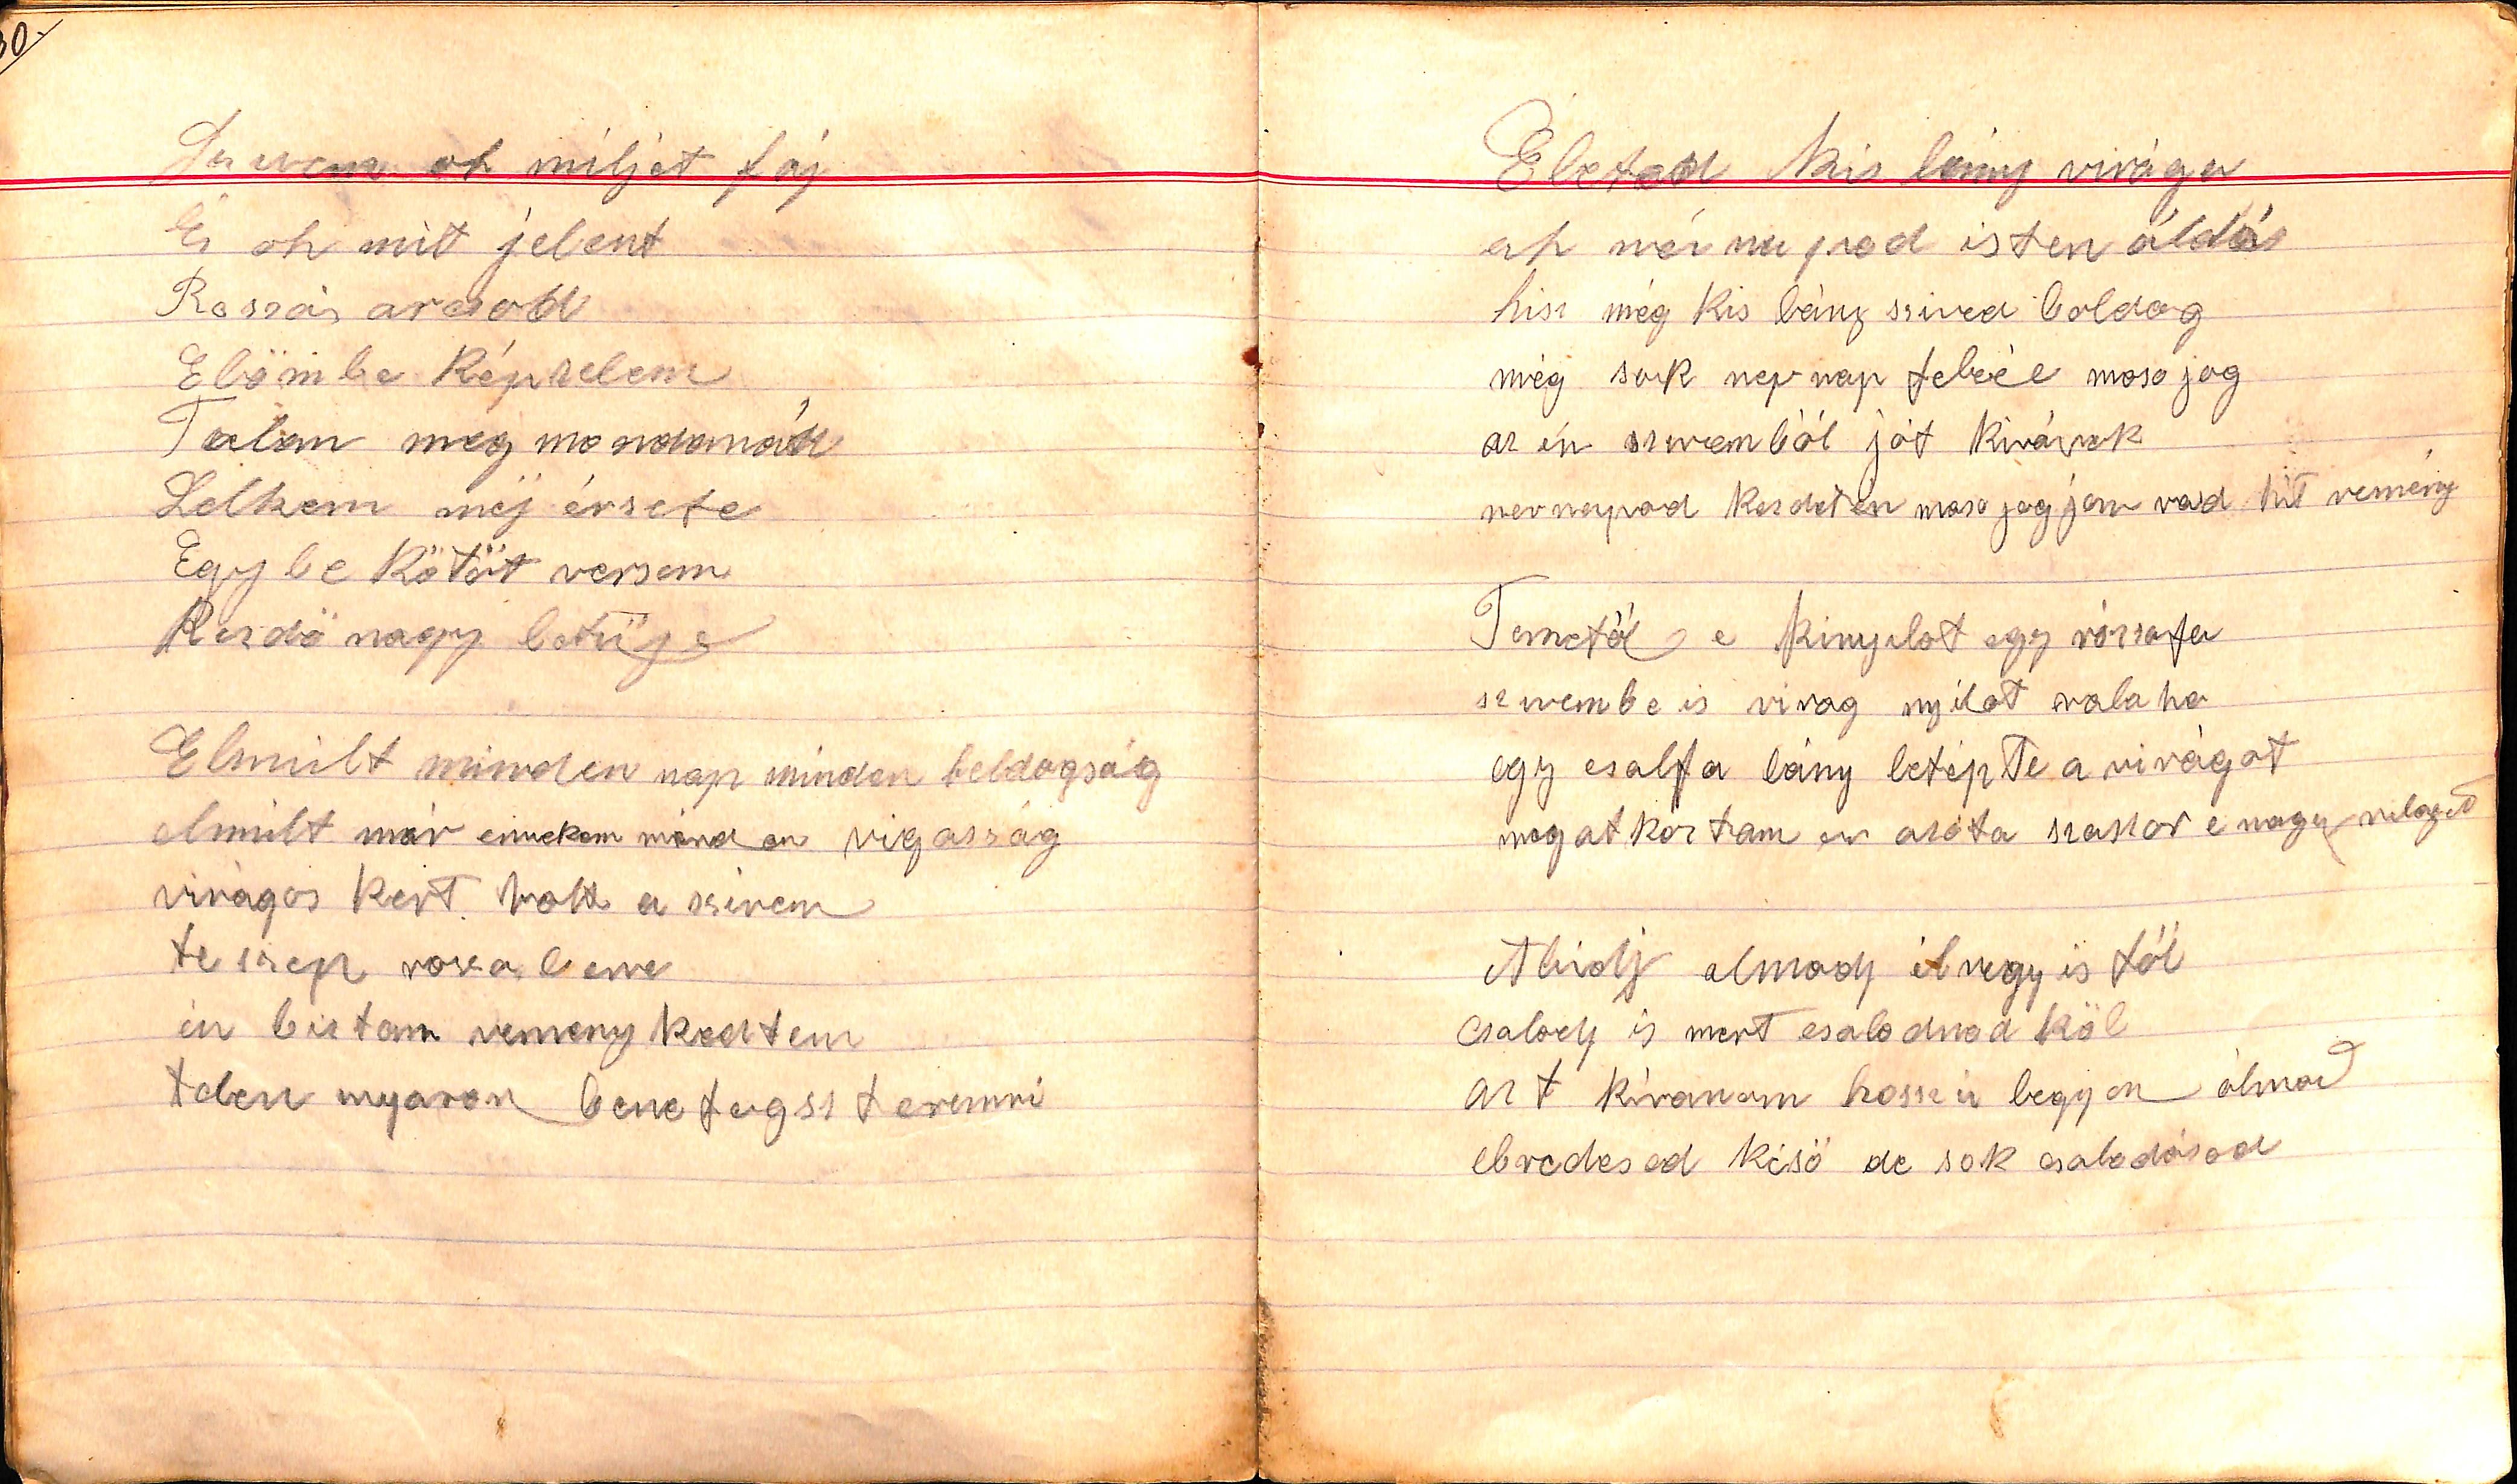 30.
Szivem oh miljet fáj
És oh mit jelent
Roszás arcsod
Elömbe Képzelem
Talan meg mondanád
Lelkem méj érzete
Egy be Kötöt versem
Kezdö nagy betüje
Elmúlt minden nap minden boldogság
elmúlt már ennekem minden vigasság
virágos kert volt a szivem
te szep roza benne
én biztam remeny kedtem
telen nyaron bene fogsz teremni
Eleted kis lány virága
ah név napod isten áldás
hisz még Kis lány szived boldog
még sok nev nap felééd mosojog
az én szivemből jót kivánok
nevnapod kezdetén mosojogjon rád hit remény
Temetől e kinyilot egy rózsafa
szivembe is virag nyilot valaha
egy csalfa lány letépte a virágot
megatkoztam en azóta százszor e nagy vilagot
Aludj almodj él vegy is föl
csalodj is mert csalodnod köl
azt kivanom hosszu legyen álmod
ebredesed késö de sok csalodásod